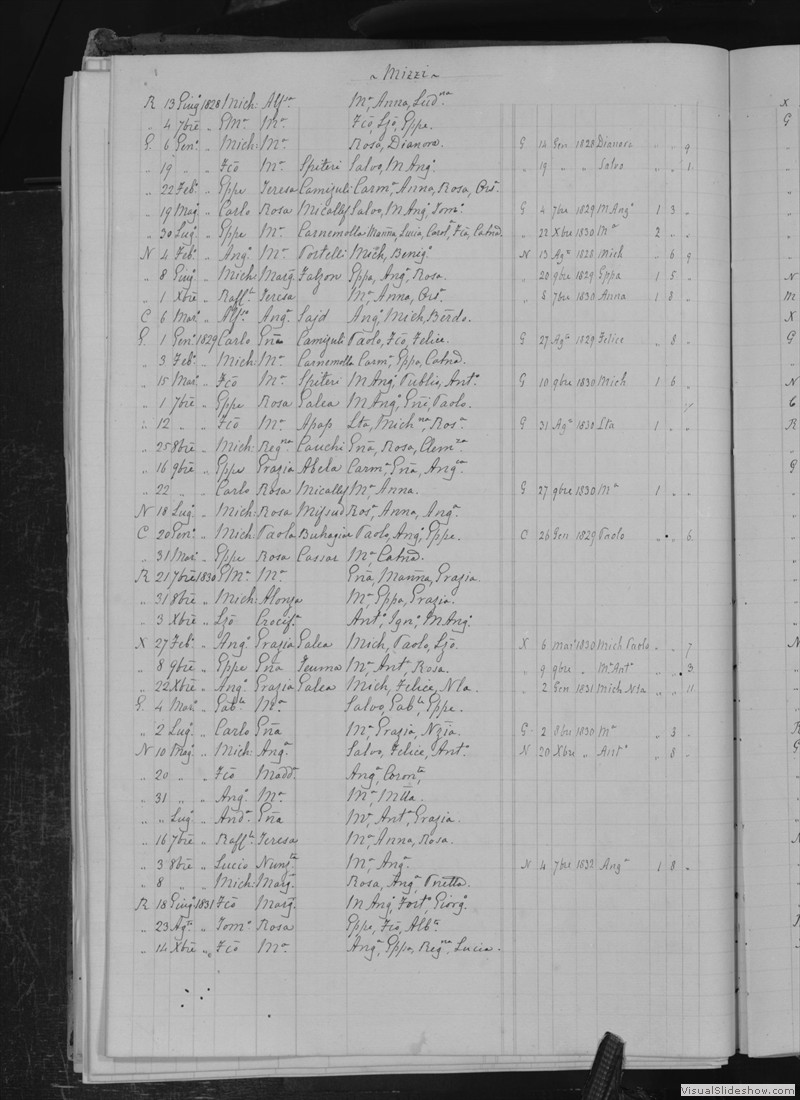 ~ Mizzi ~
R 13 Giug° 1828 Mich: Alf.sa Mª, Anna, Lud.na
„ 4 7bre „ GMª Mª Fcō, Ljō, Eppe.
G. 6 Gen° „ Mich: Mª Rosa, Dianora. G 14 Gen 1828 Dianora „ „ 9
„ 19 „ „ Fcō Mª Spiteri Salvo, M Angª. „ 19 „ „ Salvo „ „ 1.
„ 22 Feb° „ Eppe Teresa Camizuli Carmª, Anna, Rosa, Orsª.
„ 19 Mag° „ Carlo Rosa Micallef Salvo, M Angª, Tom°. G 4 7bre 1829 M Angª 1 3 „
„ 30 Lug° „ Eppe Mª Carnemolla Marīna, Lucia, Carolª, Fcā, Catnā. „ 22 Xbre 1830 Mª 2 „ „
N 4 Feb° „ Ang° Mª Portelli Mich, Benigª. N 13 Ag° 1828 Mich „ 6 9
„ 8 Giug° „ Mich: Margª Falzon Eppa, Angª, Rosa. „ 20 9bre 1829 Eppa 1 5 „
„ 1 Xbre „ Raff.le Teresa Mª, Anna, Orsª. „ 8 7bre 1830 Anna 1 8 „
C 6 Mar° „ Alf.so Angª Sajd Ang°, Mich, Berdo.
G. 1 Gen° 1829 Carlo Gnā Camizuli Paolo, Fcō, Felice. G 27 Ag° 1829 Felice „ 8 „
„ 3 Feb° „ Mich: Mª Carnemolla Carmª, Eppa, Catnā.
„ 15 Mar° „ Fcō Mª Spiteri M Angª, Publio, Ant°. G 10 9bre 1830 Mich 1 6 „
„ 1 7bre „ Eppe Rosa Galea M Angª, Gni, Paolo.
„ 12 „ „ Fcō Mª Apap Lta, Mich.na, Rosª. G 31 Ag° 1830 Lta 1 „ „
„ 25 8bre „ Mich: Reg.na Cauchi Gnā, Rosa, Clem.za
„ 16 9bre „ Eppe Grazia Abela Carmª, Gnā, Angª.
„ 22 „ „ Carlo Rosa Micallef Mª, Anna. G 27 9bre 1830 Mª 1 „ „
N 18 Lug° „ Mich: Rosa Mifsud Rosª, Anna, Angª.
C 20 Gen° „ Mich: Paola Buhagiar Paolo, Ang°, Eppe. C 26 Gen 1829 Paolo „ „ 6.
„ 31 Mar° „ Eppe Rosa Cassar Mª, Catnā.
R 21 7bre 1830 GMª Mª Gnā, Marīna, Grazia.
„ 31 8bre „ Mich: Alonza Mª, Eppa, Grazia.
„ 3 Xbre „ Ljō Crocif.ª Ant°, Ign°, M Ang°.
X 27 Feb° „ Ang° Grazia Galea Mich, Paolo, Ljō. X 6 Mar° 1830 Mich Paolo „ „ 7
„ 8 9bre „ Eppe Gnā Teuma Mª, Antª, Rosa. „ 9 9bre „ Mª Antª „ „ 3
„ 22 Xbre „ Ang° Grazia Galea Mich, Felice, Nla. „ 2 Gen 1831 Mich Nla „ „ 11.
G. 4 Mar° „ Gab.le Mª Salvo, Gab.le, Eppe.
„ 2 Lug° „ Carlo Gnā Mª, Grazia, Nzia. G 2 8bre 1830 Mª „ 3 „
N 10 Mag° „ Mich: Angª Salvo, Felice, Ant°. N 20 Xbre „ Ant° „ 8 „
„ 20 „ „ Fcō Maddª Angª, Coron.ta
„ 31 „ „ Ang° Mª Mª, Mtta.
„ „ Lug° „ And.ª Gnā Mª, Antª, Grazia.
„ 16 7bre „ Raff.le Teresa Mª, Anna, Rosa.
„ 3 8bre „ Lucio Nunz.ta Mª, Angª. N 4 7bre 1832 Angª 1 8 „
„ 8 „ „ Mich: Margª Rosa, Angª, Pnetta.
R 18 Giug° 1831 Fcō Margª M Ang°, Fort°, Giorg°.
„ 23 Ag° „ Tom° Rosa Eppe, Fcō, Alb.to
„ 14 Xbre „ Fcō Mª Angª, Eppa, Reg.na, Lucia.
VisualSlideshow.com